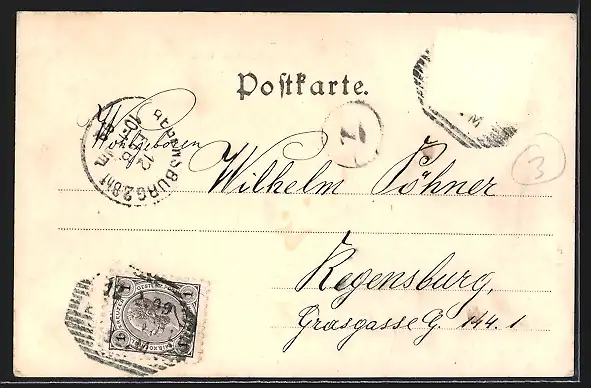 Postkarte.
Wohlgeboren
Wilhelm Pöhner
Regensburg,
Grasgasse G. 144. 1
REGENSBURG 2.Bhf
12
2
3
1